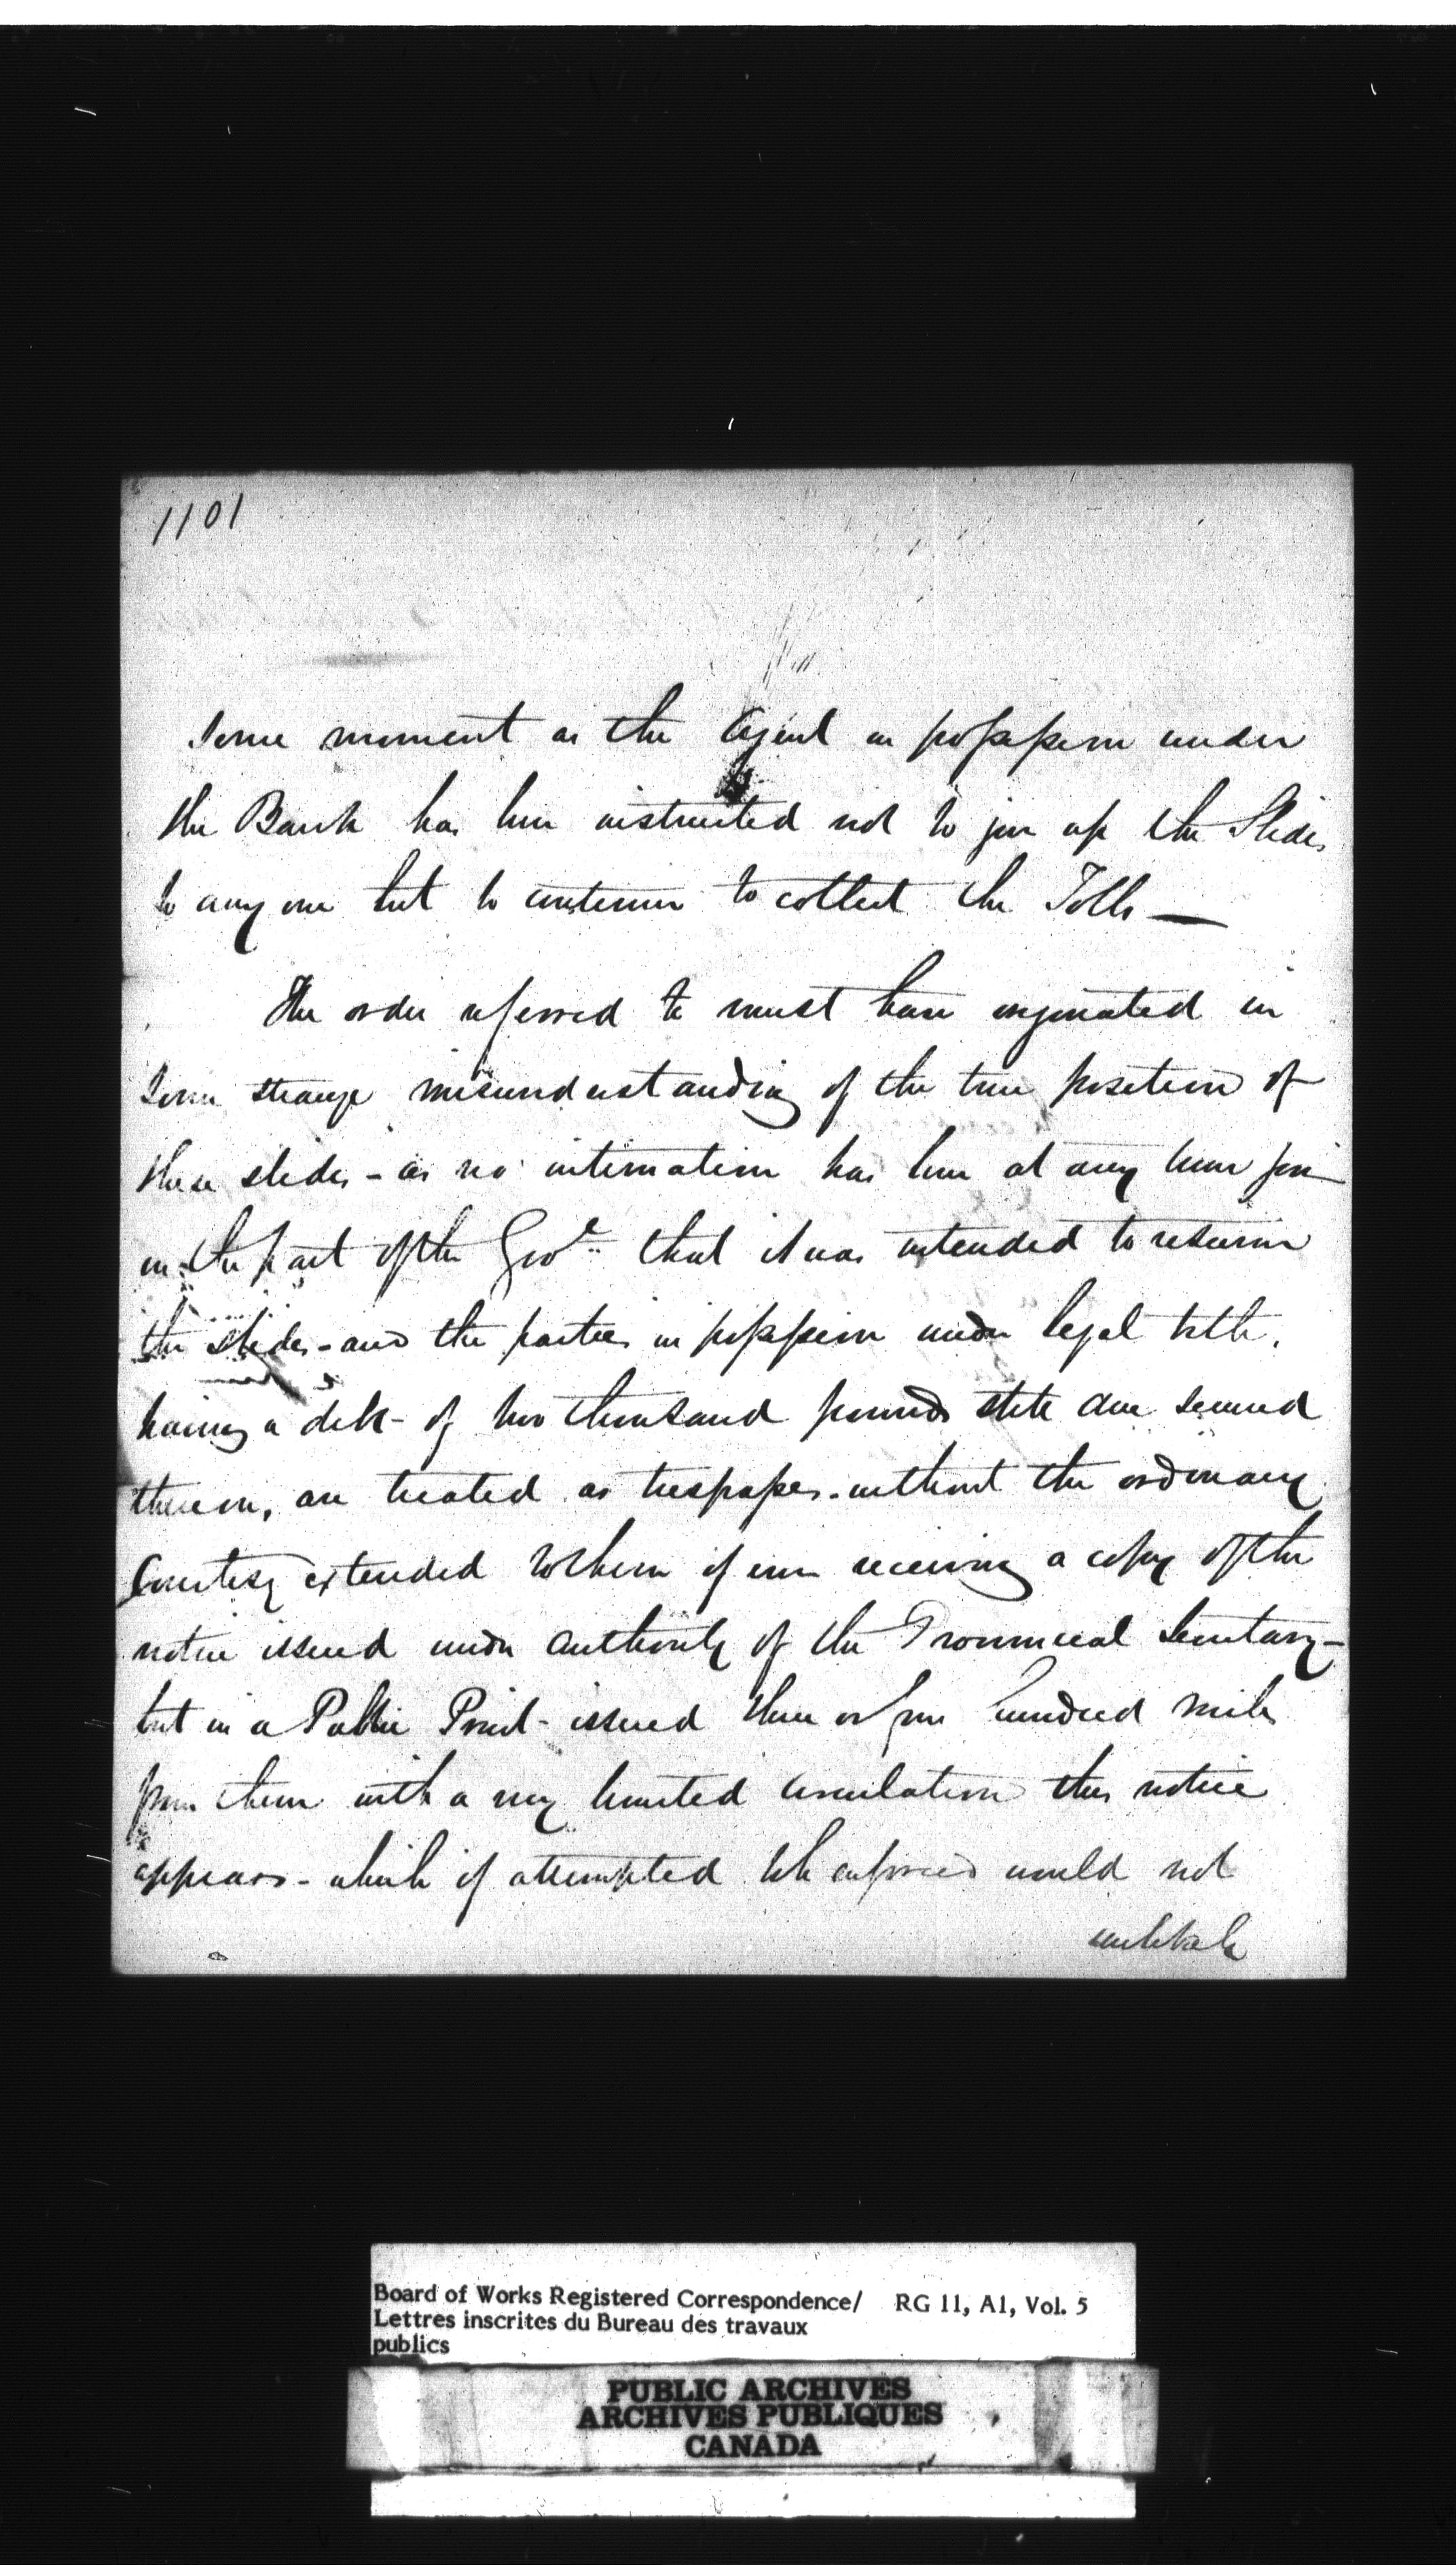 1101
some moment as the Agent in possession under
the Bank has been instructed not to give up the Slides
to any one but to continue to collect the Tolls —
The order referred to must have originated in
some strange misunderstanding of the true position of
these slides - as no intimation has been at any time given
on the part of the Govt that it was intended to resume
the slides - and the parties in possession under legal title,
having a debt of two thousand pounds still due secured
thereon, are treated as trespassers without the ordinary
Courtesy extended to them of even receiving a copy of the
notice issued under authority of the Provincial Secretary -
but in a Public Print - issued three or four hundred miles
from them with a very limited circulation this notice
appears - which if attempted to be enforced would not
Board of Works Registered Correspondence/ RG 11, A1, Vol. 5
Lettres inscrites du Bureau des travaux
publics
PUBLIC ARCHIVES
ARCHIVES PUBLIQUES
CANADA